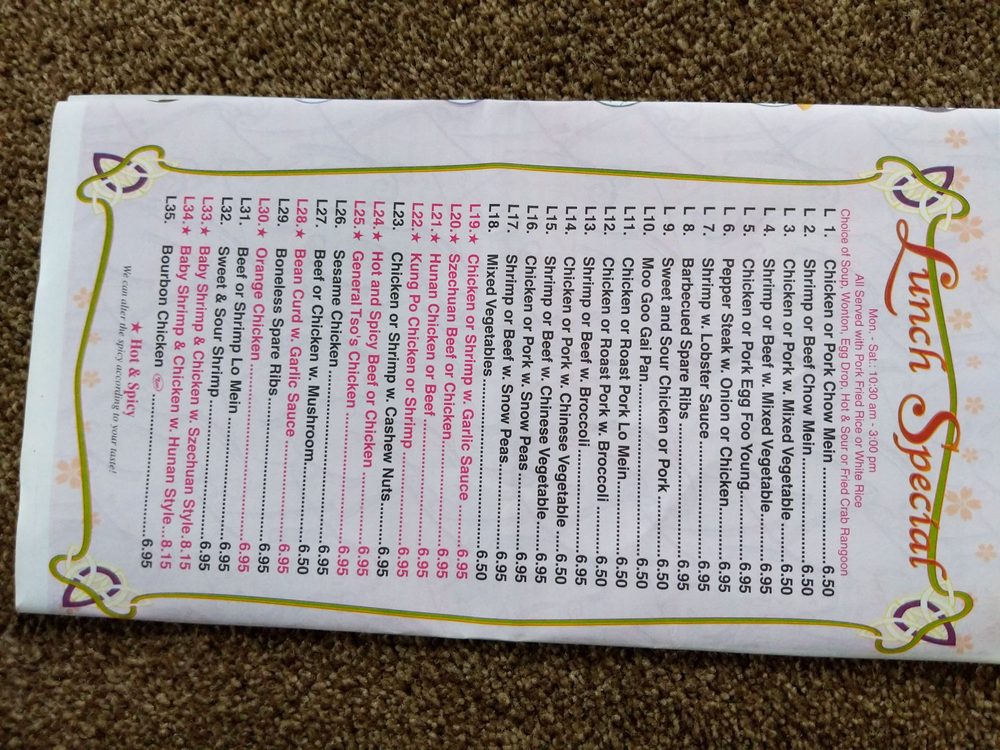 Lunch Special
Mon. - Sat: 10:30 am - 3:00 pm
All Served with Pork Fried Rice or White Rice
Choice of Soup, Wonton, Egg Drop, Hot & Sour or Fried Crab Rangoon
L 1. Chicken or Pork Chow Mein..........6.50
L 2. Shrimp or Beef Chow Mein..........6.50
L 3. Chicken or Pork w. Mixed Vegetable..........6.50
L 4. Shrimp or Beef w. Mixed Vegetable..........6.95
L 5. Chicken or Pork Egg Foo Young..........6.95
L 6. Pepper Steak w. Onion or Chicken..........6.95
L 7. Shrimp w. Lobster Sauce..........6.95
L 8. Barbecued Spare Ribs..........6.95
L 9. Sweet and Sour Chicken or Pork..........6.50
L10. Moo Goo Gai Pan..........6.50
L11. Chicken or Roast Pork Lo Mein..........6.50
L12. Chicken or Roast Pork w. Broccoli..........6.50
L13. Shrimp or Beef w. Broccoli..........6.95
L14. Chicken or Pork w. Chinese Vegetable..........6.50
L15. Shrimp or Beef w. Chinese Vegetable..........6.95
L16. Chicken or Pork w. Snow Peas..........6.95
L17. Shrimp or Beef w. Snow Peas..........6.95
L18. Mixed Vegetables..........6.50
L19.★ Chicken or Shrimp w. Garlic Sauce..........6.95
L20.★ Szechuan Beef or Chicken..........6.95
L21.★ Hunan Chicken or Beef..........6.95
L22.★ Kung Po Chicken or Shrimp..........6.95
L23. Chicken or Shrimp w. Cashew Nuts..........6.95
L24.★ Hot and Spicy Beef or Chicken..........6.95
L25.★ General Tso's Chicken..........6.95
L26. Sesame Chicken..........6.95
L27. Beef or Chicken w. Mushroom..........6.50
L28.★ Bean Curd w. Garlic Sauce..........6.95
L29. Boneless Spare Ribs..........6.95
L30.★ Orange Chicken..........6.95
L31. Beef or Shrimp Lo Mein..........6.95
L32. Sweet & Sour Shrimp..........6.95
L33.★ Baby Shrimp & Chicken w. Szechuan Style.8.15
L34.★ Baby Shrimp & Chicken w. Hunan Style...8.15
L35. Bourbon Chicken..........6.95
★ Hot & Spicy
We can alter the spicy according to your taste!